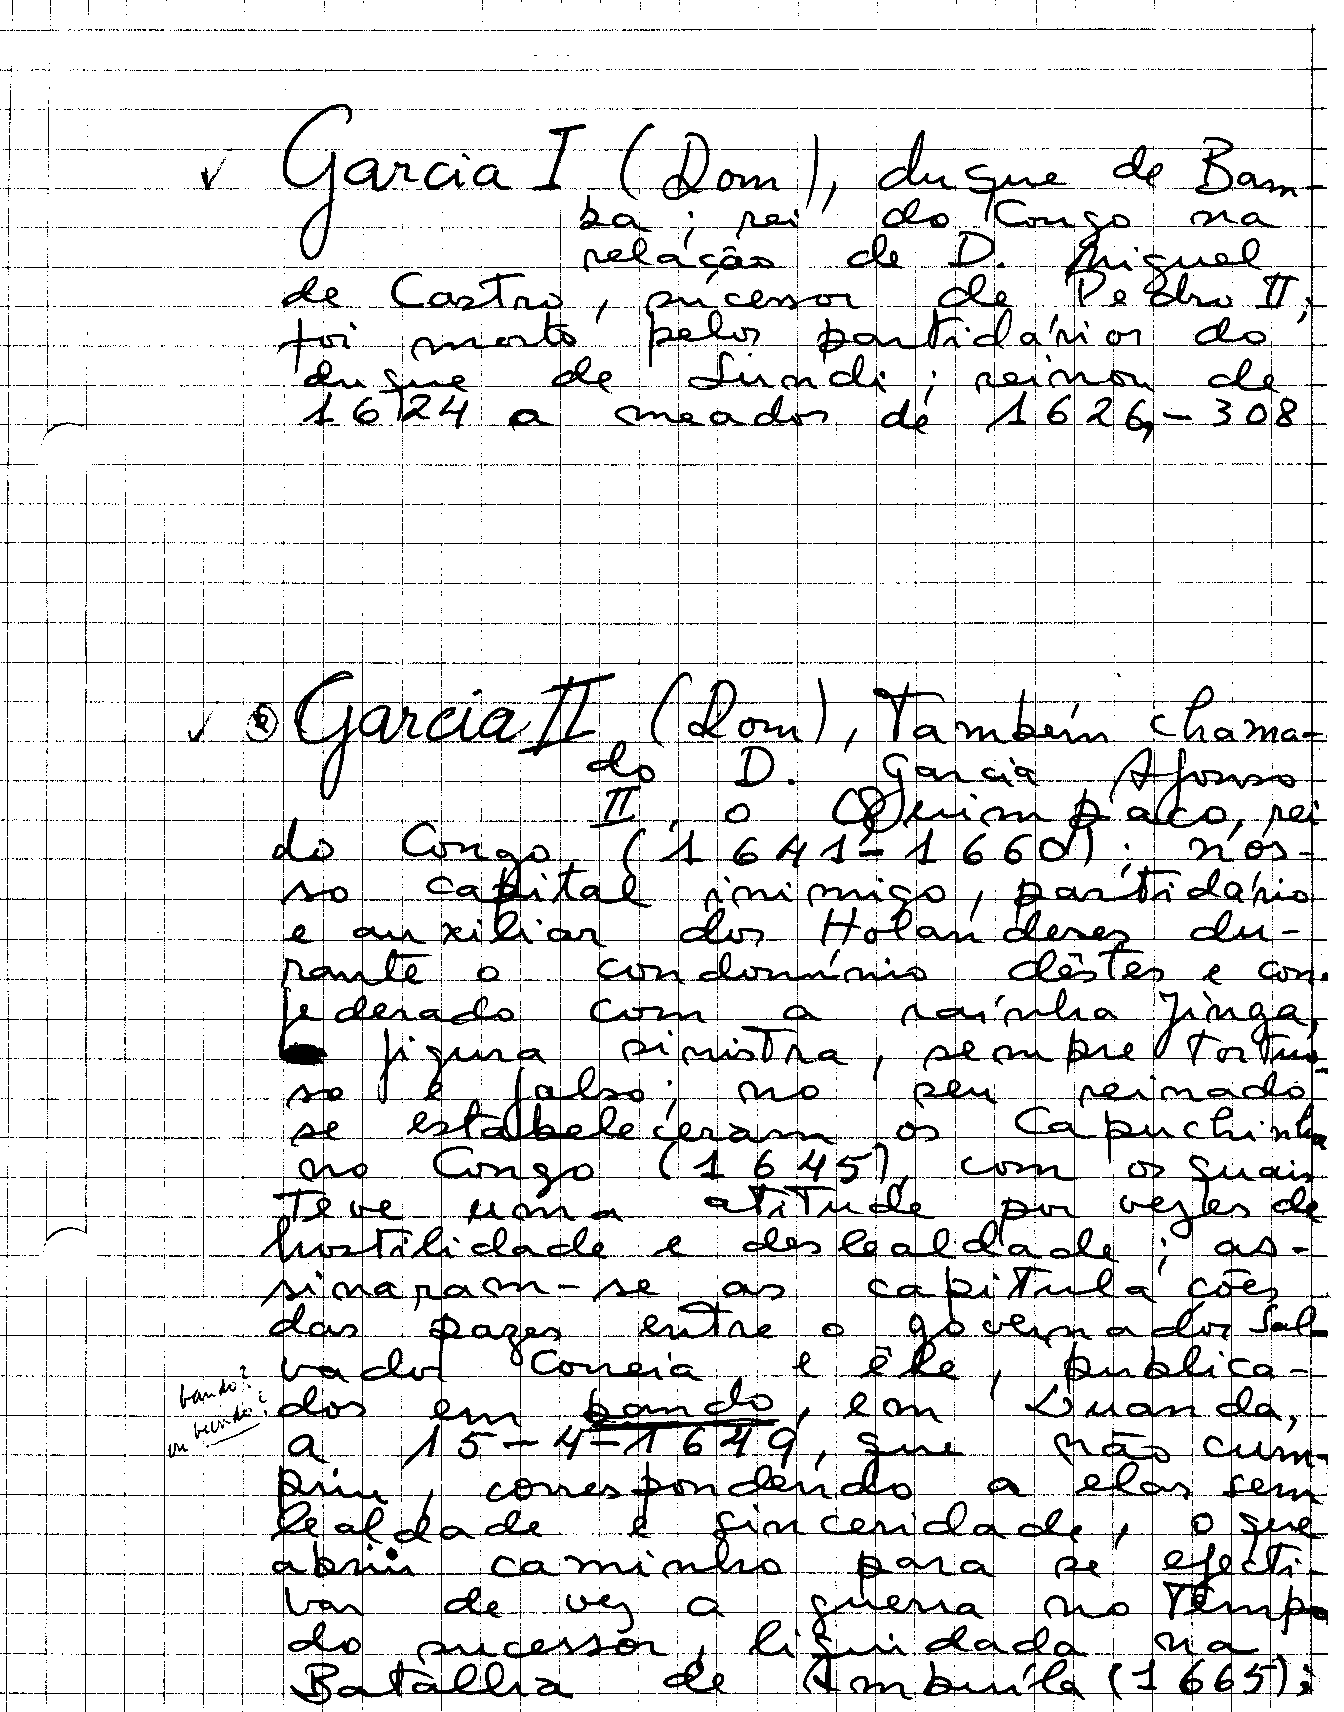 ✓ Garcia I (Dom), duque de Bam-
ba; rei do Congo na
relação de D. Miguel
de Castro, sucessor de Pedro II;
foi morto pelos partidários do
duque de Sundi; reinou de
1624 a meados de 1626,-308
✓ Garcia II (Dom), também chama-
do D. Garcia Afonso
II, o Quimpaco, rei
do Congo (1641-1660); nos-
so capital inimigo, partidário
e auxiliar dos Holandeses du-
rante o condomínio dêstes e con-
federado com a rainha Jinga,
figura sinistra, sempre tortuo-
so e falso; no seu reinado
se estabeleceram os Capuchinhos
no Congo (1645), com os quais
teve uma atitude por vezes de
hostilidade e deslealdade; as-
sinaram-se as capitulações
das pazes entre o governador Sal-
vador Correia e êle, publica-
dos em bando, em Luanda,
bando?
ou
a 15-4-1649, que não cum-
priu, correspondendo a elas sem
lealdade e sinceridade, o que
abriu caminho para se efecti-
var de vez a guerra no tempo
do sucessor, liquidada na
Batalha de Ambuíla (1665);